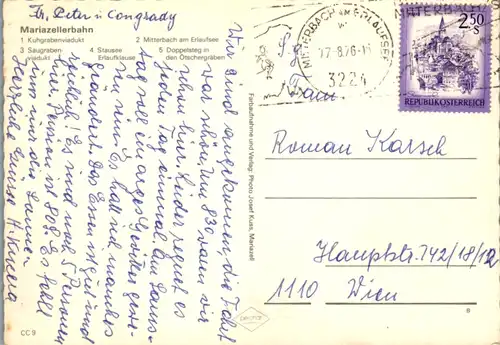 Hr. Peter v. Congrady
Mariazellerbahn
1 Kuhgrabenviadukt 2 Mitterbach am Erlaufsee
3 Saugrabenviadukt 4 Stausee Erlaufklause 5 Doppelsteg in den Ötschergräben
Wir sind angekommen, die Fahrt
war schön. Um 8 30 waren wir
schon hier. Leider regnet es
jeden Tag einmal. Am Samstag
soll ein arges Gewitter gewesen
sein. Es hat sich manches
geändert. Das Essen ist gut und
reichlich! Es sind noch 5 Personen
hier. Pension ist 80 S. Es fehlt
nur die Laune
Herzliche Grüsse H. Kucera
Farbaufnahme und Verlag: Photo Josef Kuss, Mariazell
MITTERBACH AM ERLAUFSEE
22-8.76-1
3224
2.50 S
REPUBLIK ÖSTERREICH
Roman Karsch
Hauptstr. 742/18/12
1110 Wien
CC 9
8